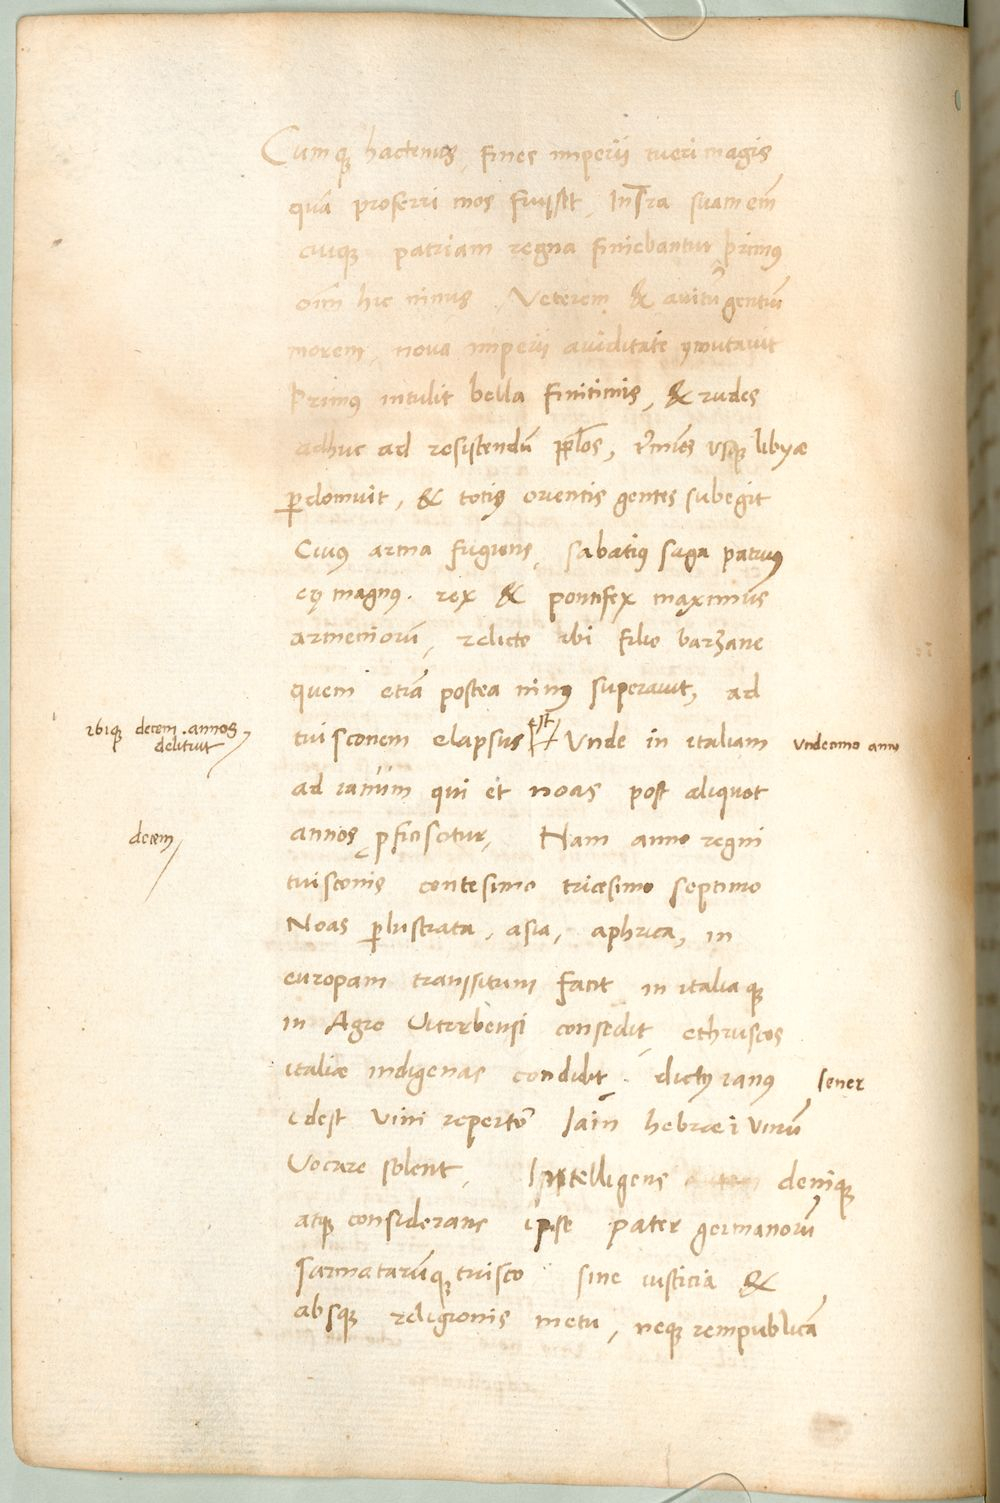 Cumq; hactenus, fines imperii tueri magis
quā proferri mos fuisset, Intra suam em̄
cuiq; patriam regna finiebantur primus
oīm hic ninus. Veterem & avitū gentiū
morem, nova imperii aviditate ymutavit
Primus intulit bella finitimis, & rudes
adhuc ad resistendū pplos, usq; libyæ
perdomuit, & totius orientis gentes subegit
Cuius arma fugiens, sabatius saga patruus
magnus. rex & pontifex maximus
armeniorū, relicto ibi filio barzane
quem etiā postea ninus superavit, ad
ibiq; decem annos delituit, tuisconem elapsus est Unde in italiam undecimo anno
ad ianum qui et noas post aliquot
decem annos pficiscitur, Nam anno regni
tuisconis centesimo tricesimo septimo
Noas perlustrata, asia, aphrica, in
europam transsitum facit in italiaq;
in Agro Viterbensi consedit, ethruscos
italiæ indigenas condidit. dictus ianus senex
idest vini repertor Iain hebræi vinū
Vocare solent, Intelligens deniq;
atq; considerans ipse pater germanorū
sarmatarūq; tuisco sine iusticia &
absq; religionis metu, neq; rempublicā